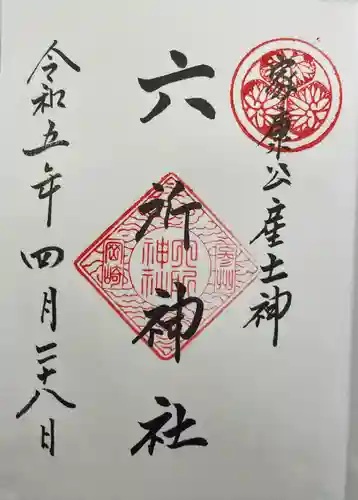 家康公産土神
六所神社
令和五年四月二十八日
参州
六所神社
岡崎